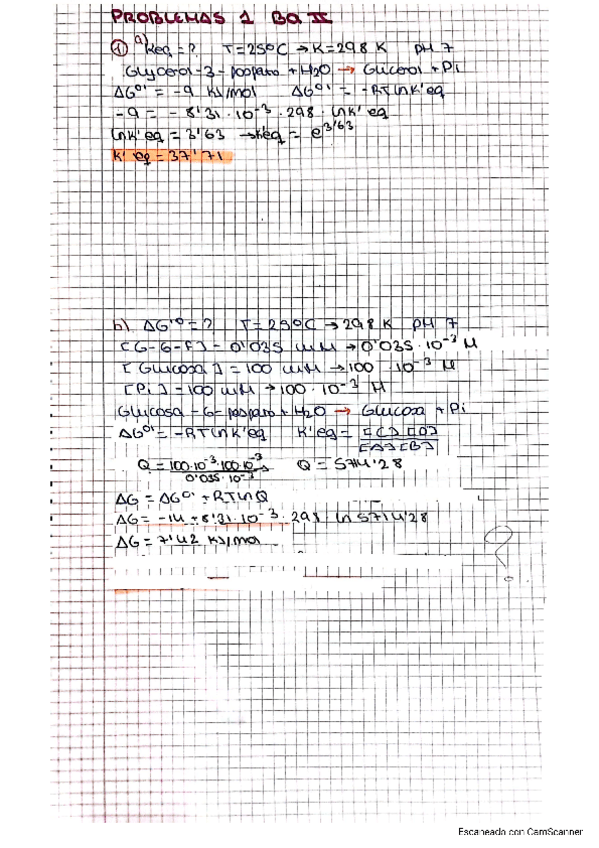 PROBLEMAS 1 BQ II
① a) Keq = ? T = 25ºC → K = 298 K pH 7
Glycerol-3-fosfato + H2O → Glicerol + Pi
ΔGº' = -9 KJ/mol ΔGº' = -RTlnK'eq
-9 = -8'31·10⁻³·298·lnK'eq
lnK'eq = 3'63 → Keq = e^3'63
K'eq = 37'71
b) ΔG'º = ? T = 25ºC → 298 K pH 7
[G-6-F] = 0'035 mM → 0'035·10⁻³ M
[Glucosa] = 100 mM → 100·10⁻³ M
[Pi] = 100 mM → 100·10⁻³ M
Glucosa-6-fosfato + H2O → Glucosa + Pi
ΔGº' = -RTlnK'eq K'eq = [C][D]/[A][B]
Q = 100·10⁻³·100·10⁻³/0'035·10⁻³ Q = 5714'28
ΔG = ΔGº' + RTlnQ
ΔG = -14 + 8'31·10⁻³·298 ln 5714'28
ΔG = 7'42 KJ/mol
?
Escaneado con CamScanner